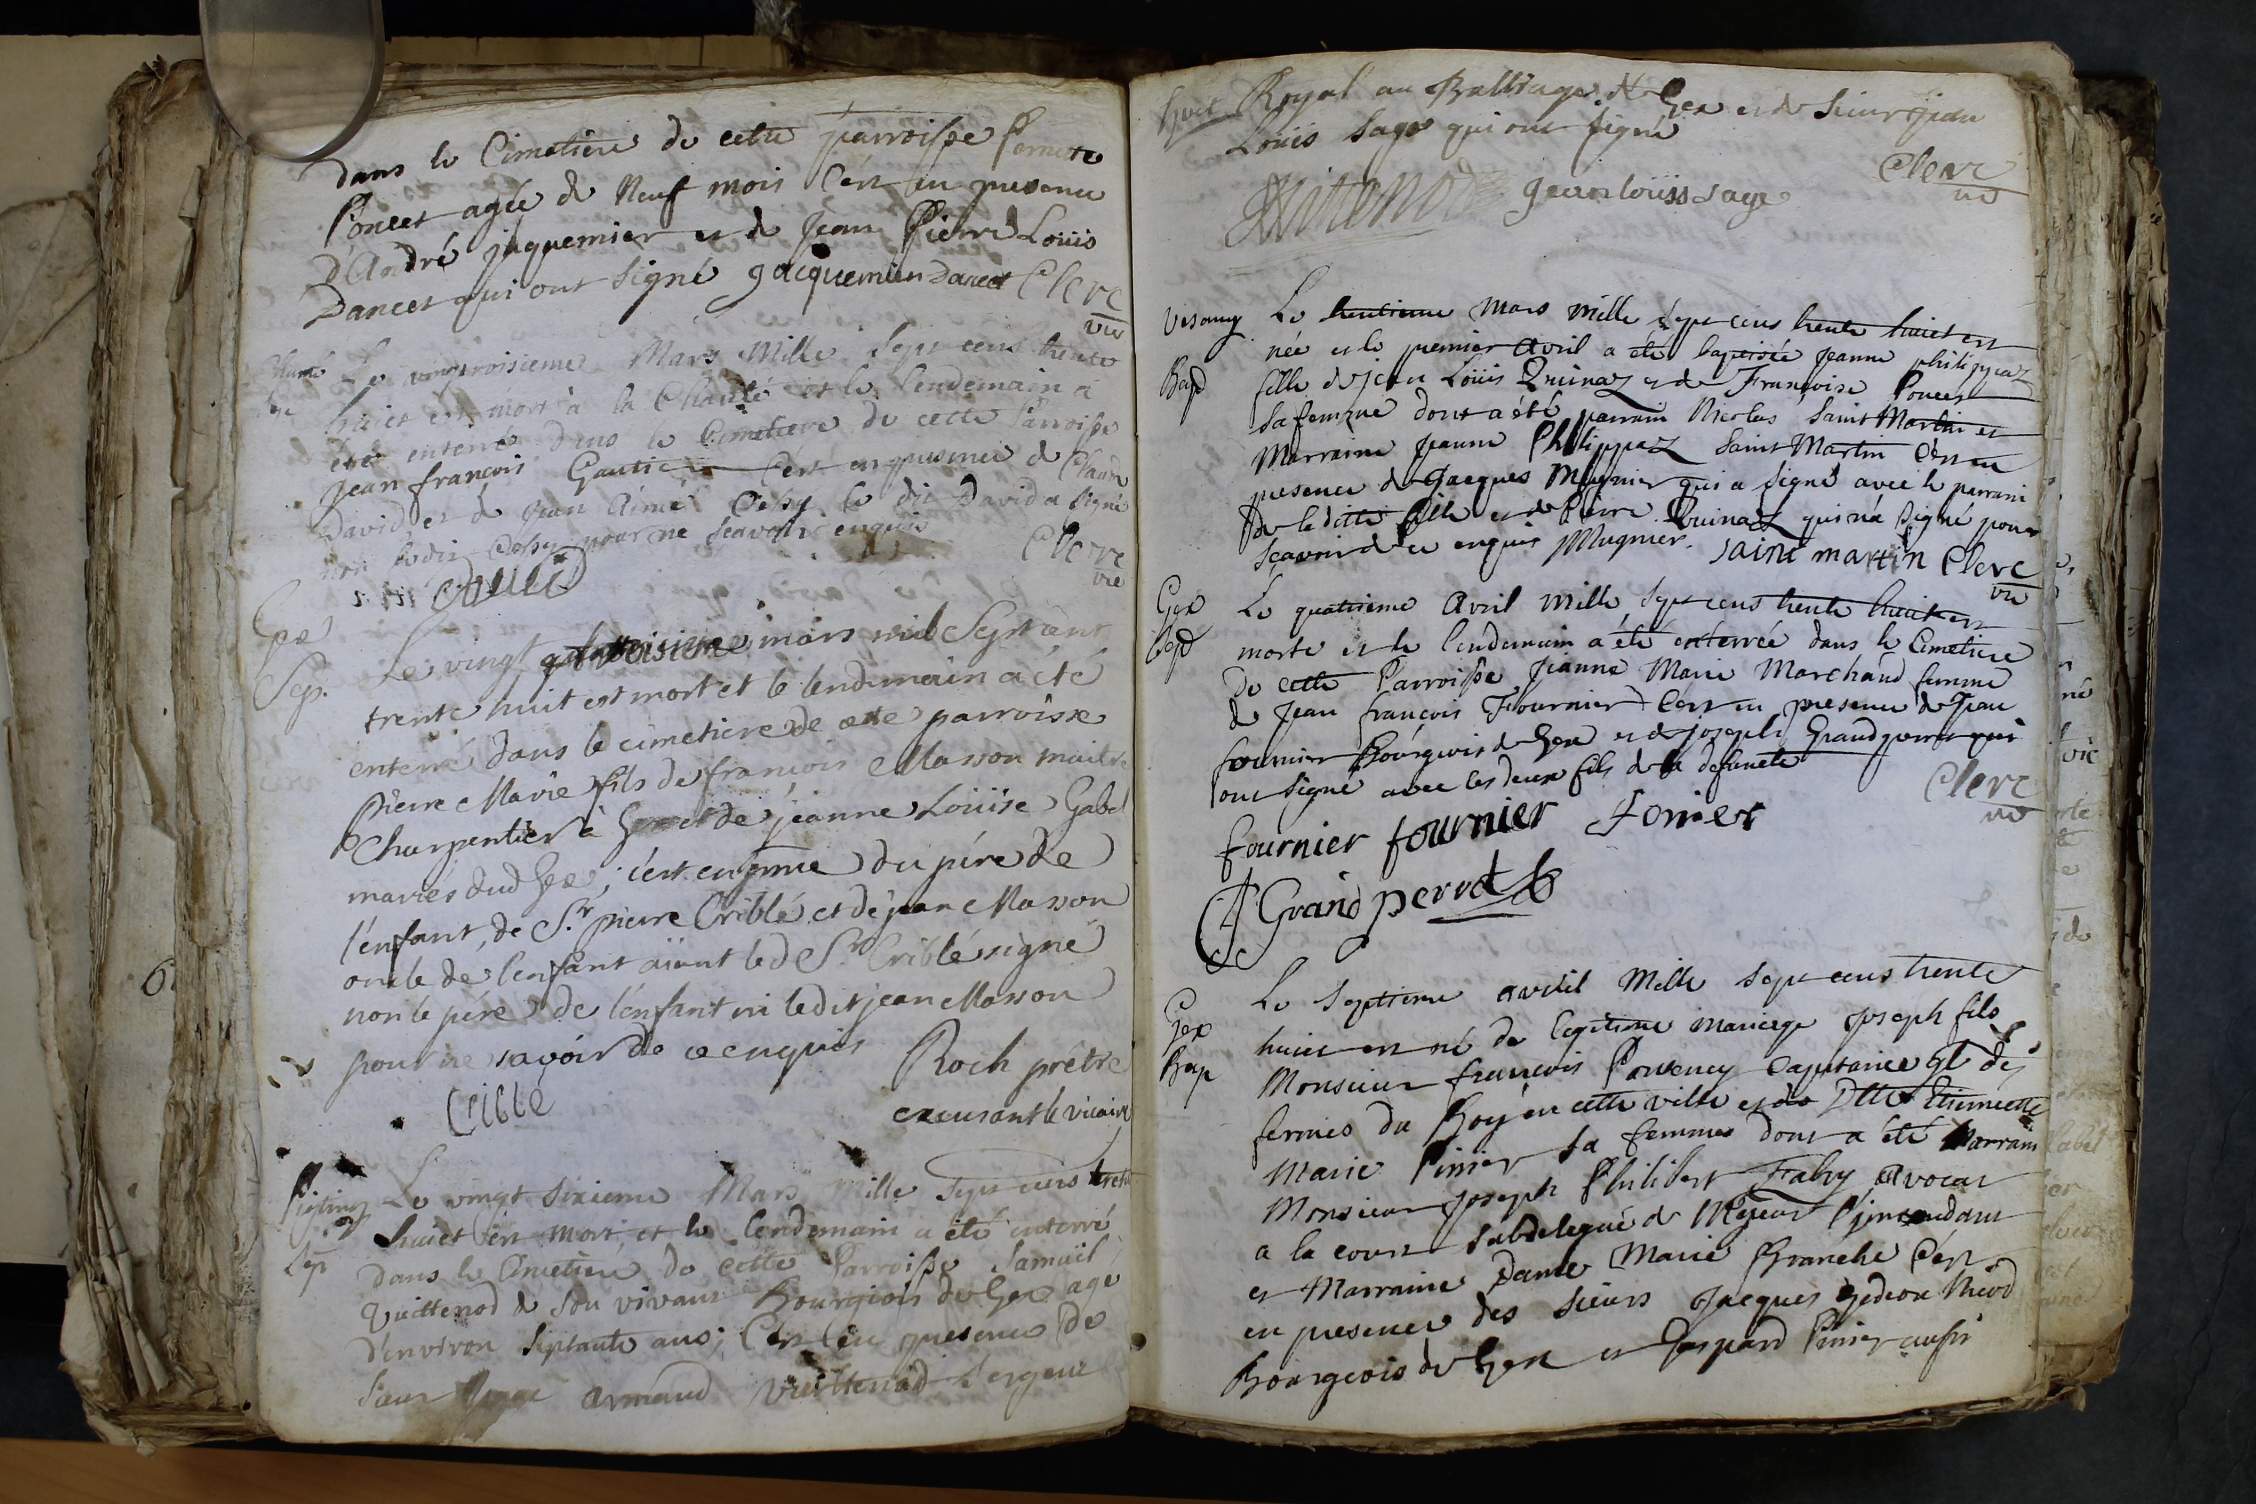 dans le Cimetiere de cette parroisse Pernette
Poncet agée de Neuf mois C'est en presence
d'André jaquemier et de Jean Pierre Louis
Dancet qui ont signé jacquemier Dancet Clerc
vic
Le vingtroisieme Mars Mille sept cens trente
huict est mort à la Charité et le lendemain a
été enterré dans le Cimetiere de cette Parroisse
Jean françois Gautier C'est en presence de Claude
David et de Jean Aimé le dit David a signé
non ledit pour ne sçavoir enquis
Clerc
vic
David
Gex
Sep.
Le vingt troisieme mars mil Sept cent
trente huit est mort et le lendemain a été
enterré dans le cimetiere de cette parroisse
Pierre Marie fils de françois Masson maitre
Charpentier à Gex et de jeanne Loüise Gabel
mariés dud Gex; c'est en pnce du pére de
l'enfant, de Sr. pierre Criblé et de jean Masson
oncle de l'enfant aiant led Sr Criblé signé
non le pére de l'enfant ni ledit jean Masson
pour ne savoir de ce enquis
Roch prêtre
Criblé
excusant le vicaire
Sep
Le vingt sixieme Mars Mille sept cens trente
huict est mort et le lendemain a été enterré
dans le Cimetiere de cette Parroisse Samuël
Vuittenod de son vivant Bourgeois de Gex agé
d'environ septante ans; C'est en presence de
Sieur armand Vuittenod Sergent
huit Royal au Bailliage de Gex et de Sieur Jean
Loüis Sage qui ont signé
Clerc
vic
Vittenod jean loüis sage
Vesancy
Bap
Le trentieme Mars mille sept cens trente huict est
née et le premier Avril a été baptisée Jeanne philippaz
fille de jean Loüis Quinaz et de Françoise Poncet
sa femme dont a été parrain Nicolas Saint Martin et
Marraine Jeanne Philippaz Saint Martin C'est en
presence de Jacques Mugnier qui a signé avec le parrain
de la ditte fille et de Pierre Quinaz qui n'a signé pour
sçavoir de ce enquis Mugnier. saint martin Clerc
vic
Gex
Sep
Le quatrieme Avril Mille sept cens trente huict est
morte et le lendemain a été enterrée dans le Cimetiere
de cette Parroisse Jeanne Marie Marchand femme
de Jean françois Fournier C'est en presence de Jean
fournier Bourgeois de Gex et de joseph Grandperret qui
ont signé avec les deux fils de la defuncte
Clerc
vic
fournier fournier Fornier
Grand perret
Gex
Bap
Le septieme avril Mille sept cens trente
huict est né de legitime mariage Joseph fils
Monsieur françois Pouvency Capitaine gl des
fermes du Roy en cette ville et de Dlle Etiennette
Marie Pinier sa femme dont a été Parrain
Monsieur Joseph Philibert Fabry Avocat
a la cour subdelegué de Mgeur l'jntendant
et Marraine Dame Marie Branche C'est
en presence des sieurs Jacques Gedeon Nicod
Bourgeois de Gex et Gaspard Pinier aussi